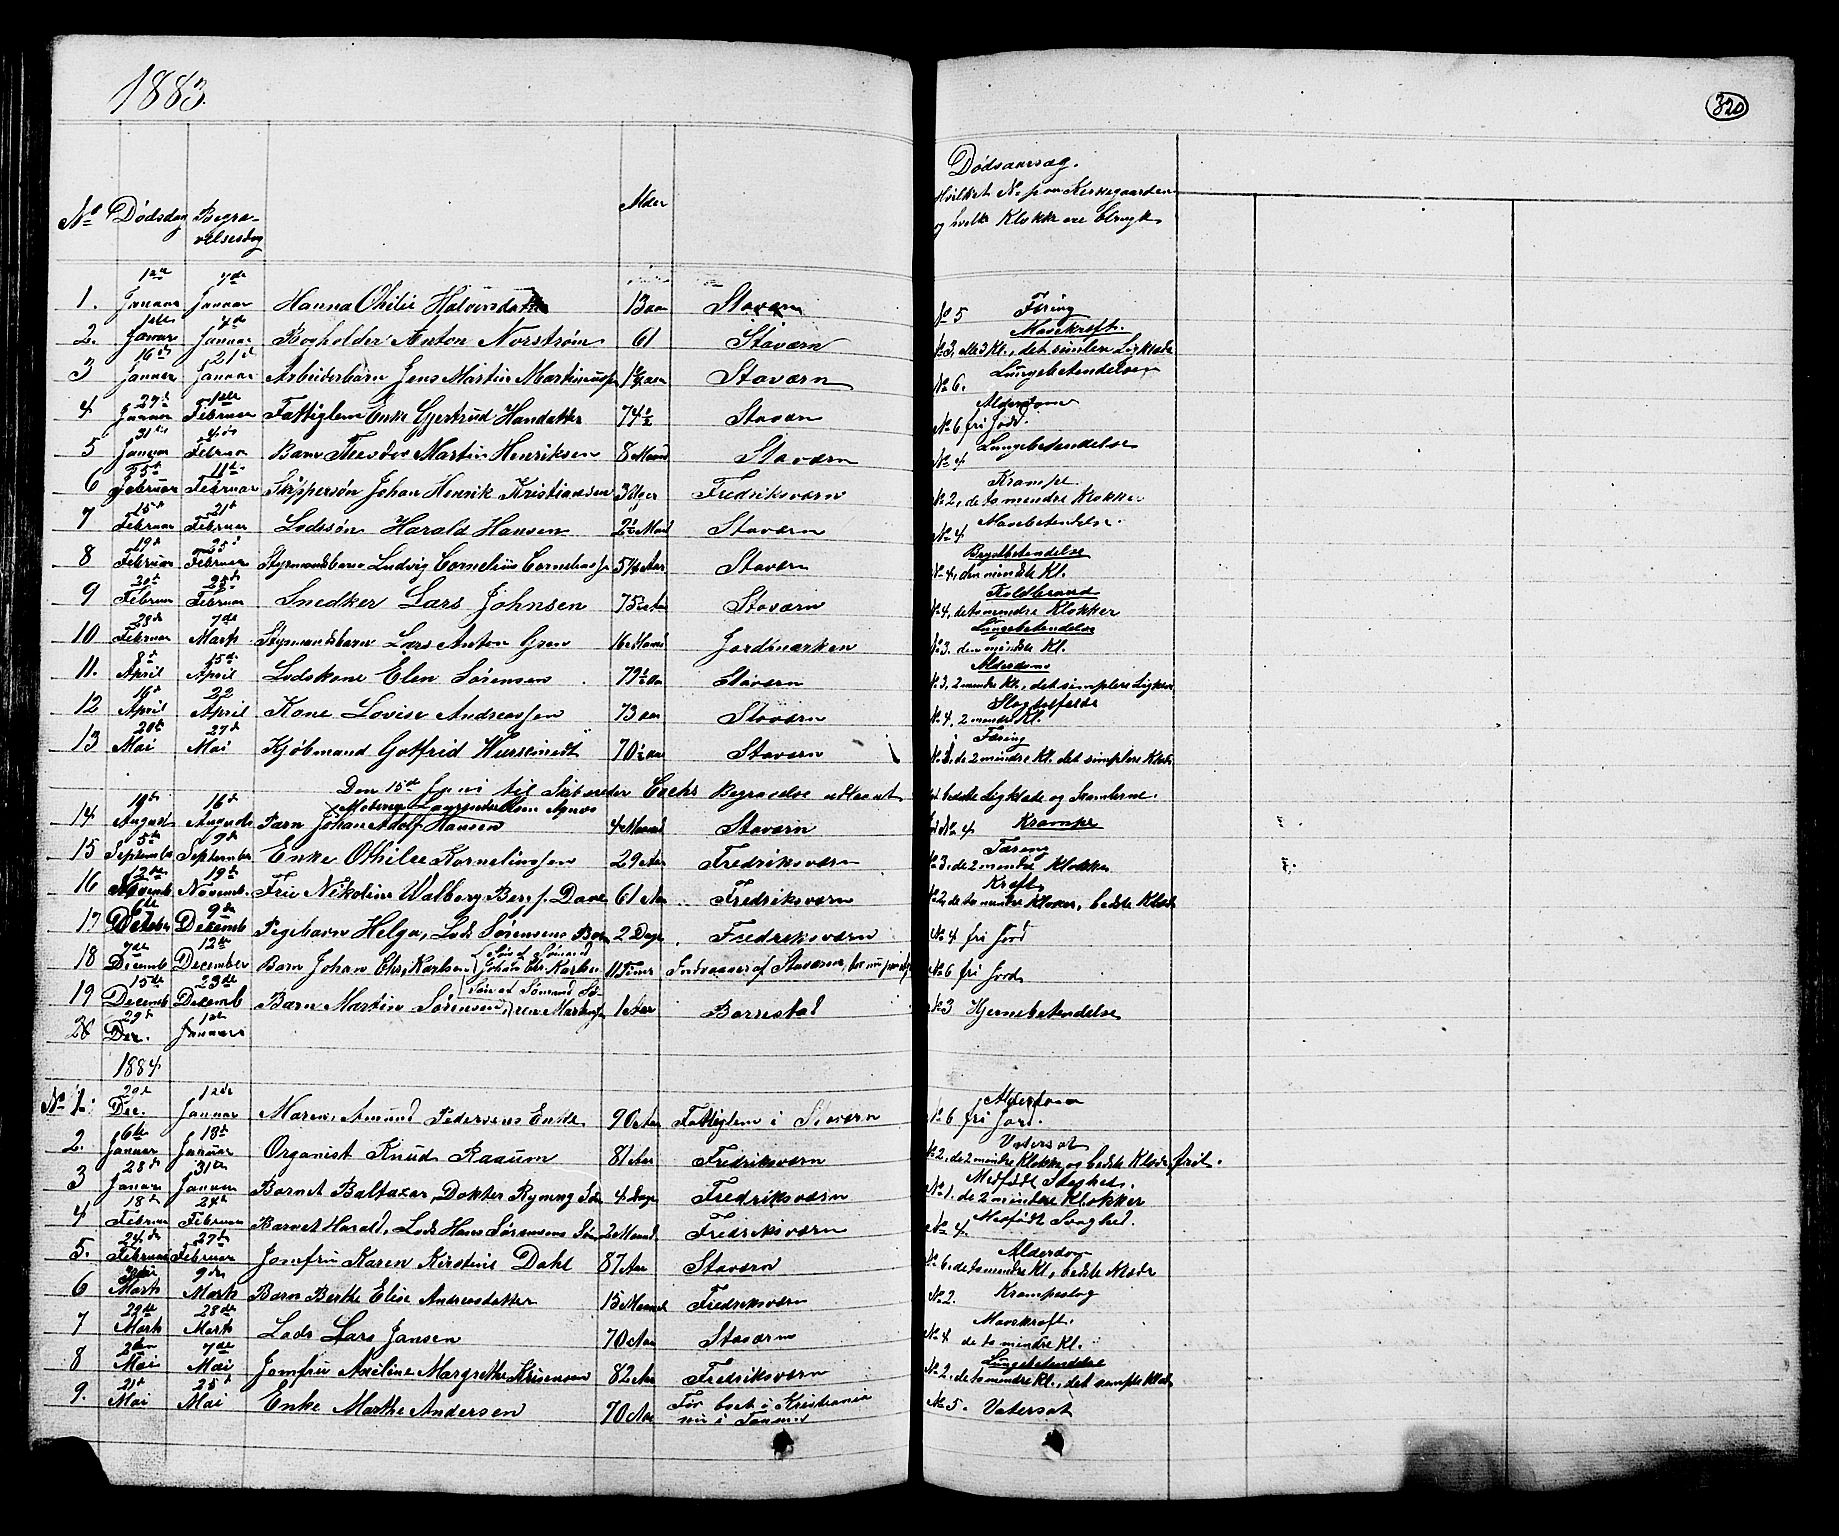 1883.
320
No Dødsdag Begra-
velsesdag
Alder
Dødsaarsag.
Hvilket No paa Kirkegaarden
og hvilke Klokker ere brugt
1. 1ste Januar 7de Januar Hanna Othilie Halvorsdatter 13 aar Staværn No 5 Tæring
2. Januar Januar Bogholder Anton Norstrøm 61 Staværn Mavekræft. No 3, alle 3 Kl., det simplere Ligklæde
3 16de Januar 21de Januar Arbeiderbarn Jens Martin Martinussen aar Staværn No 6. Lungebetændelse
4 27de Januar 1ste Februar Fattiglem Enke Gjertrud Hansdatter 74½ Staværn Alderdom No 6 fri Jord.
5 31te Januar Februar Barn Theodor Martin Henriksen 8 Maaned Staværn No 4 Lungebetændelse
6 5te Februar 11te Februar Skippersøn Johan Henrik Kristiansen 3 Uger Fredriksværn Krampe No 2, de to mindre Klokker
7 15de Februar 21de Februar Lodssøn Harald Hansen 2½ Maaned Staværn No 4 Mavebetændelse.
8 19de Februar 25de Februar Styrmandsbarn Ludvig Cornelius Corneliussen 5¼ Aar Staværn Brystbetændelse No 4, den mindste Kl.
9 20de Februar 25de Februar Snedker Lars Johnsen 75 Aar Staværn Koldbrand No 4, de to mindre Klokker
10 28de Februar 7de Marts Styrmandsbarn Lars Anton Olsen 16 Maaned Jordmarken Lungebetændelse No 3. den mindste Kl.
11. 8de April 15de April Lodskone Elen Sørensen 79½ aar Staværn Alderdom No 3, 2 mindre Kl., det simplere Ligklæde
12 16de April 22 April Kone Lovise Andreassen 73 aar Staværn Slagtilfælde No 4, 2 mindre Kl.
13 20de Mai 27de Mai Kjøbmand Gotfrid 70½ aar Staværn Tæring No 3, de 2 mindre Kl. det simplere Klæde
Den 15de Juni til Skibsreder Begravelse udlaant det bedste Ligklæde og Skamlerne.
14 August 16de August Barn Johan Adolf Hansen 4 Maaned Staværn No 4 Krampe
15 5te September 9de September Enke Othilie Kornelinssen 29 Aar Fredriksværn Tæring No 3, de 2 mindre Klokker
16 12te Novemb. 19de Novemb. Fru Nikoline Walborg Berg f. Dave 61 Aar Fredriksværn Kræft No 2, de to mindre Klokker, bedste Klæde
17 6te 9de Decemb Pigebarn Helga, Lods Sørensens Barn 2 Dage Fredriksværn No 4 fri Jord
18 7de Decemb 12te December Barn Johan Chr. Karlsen (Søn af Sømand Johan Chr. Karlsen 11 Timer Indvaaner af Staværn No 6 fri Jord
19 15de Decemb 23de Decemb Barn Martin Sørensen (Søn af Sømand Sø- ren 1 Aar Borrestad No 3 Hjernebetændelse
20 29de Dec. 1ste Januar
1884
No 1. 29de Dec. 1ste Januar Maren, Amund Pedersens Enke 90 Aar Fattiglem i Staværn Alderdom No 6 fri Jord.
2. 6te Januar 13de Januar Organist Knud Raaum 81 Aar Fredriksværn Vatersot No 2, de 2 mindre Klokker og bedste Klæde frit.
3 28de Januar 31te Januar Barnet Baltazar, Dokter Ryning Søn 4 Dage Fredriksværn Medfødt Svaghed. No 1. de 2 mindre Klokker
4 18de Februar 24de Februar Barnet Harald, Lods Hans Sørensens Søn 2 Maaned Fredriksværn No 4 Medfødt Svaghed.
5. 24de Februar 27de Februar Jomfru Karen Kirstine Dahl 87 Aar Staværn Alderdom No 6, de to mindre Kl, bedste Klæde
6 Marts 9de Marts Barn Berthe Elise Andreasdatter 15 Maaned Fredriksværn No 2. Krampeslag
7 22de Marts 28de Marts Lods Lars Jansen 70 Aar Staværn Mavekræft. No 4 de to mindre Kl.
8 2den Mai 7de Mai Jomfru Axeline Margrethe Kristensen 82 Aar Fredriksværn Lungebetændelse No 2, de to mindre Kl., det simple Klæde
9. 21de Mai 25de Mai Enke Marthe Andersen 70 Aar Før boet i Kristiania nu i No 5. Vatersot